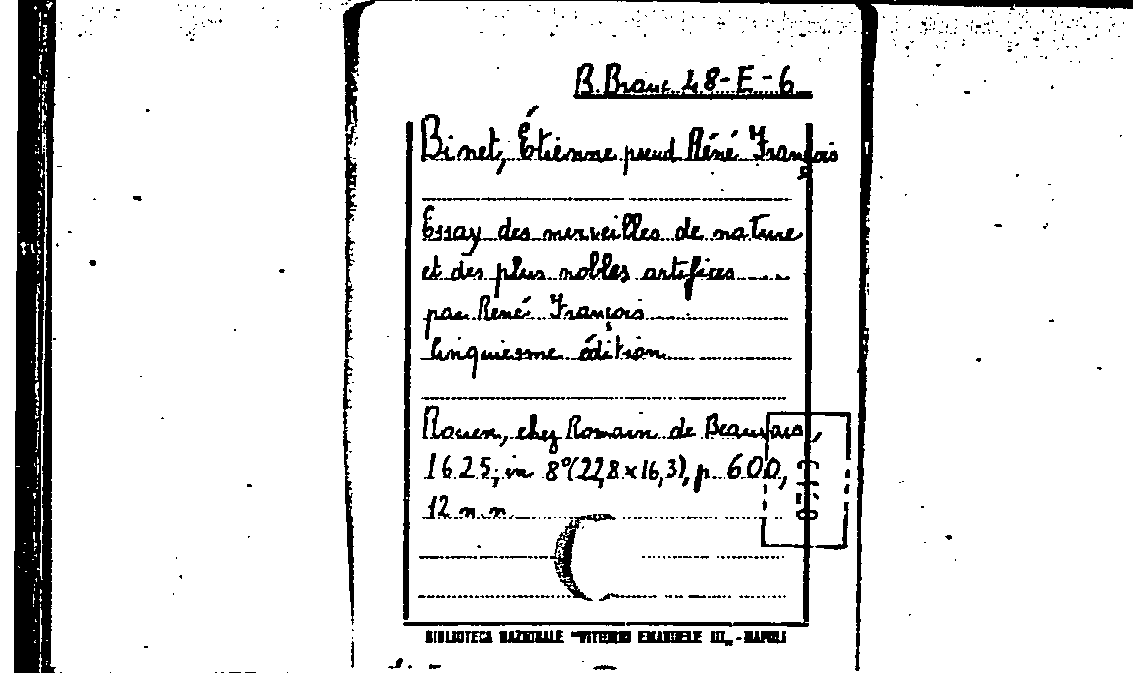 B. Branc 48-E-6
Binet, Étienne pseud Réné François
Essay des merveilles de nature
et des plus nobles artifices
par René François
Cinquiesme édition
Rouen, chez Romain de Beauvais,
1625; in 8° (22,8 x 16,3), p. 600,
12 n.n.
BIBLIOTECA NAZIONALE "VITTORIO EMANUELE III" - NAPOLI